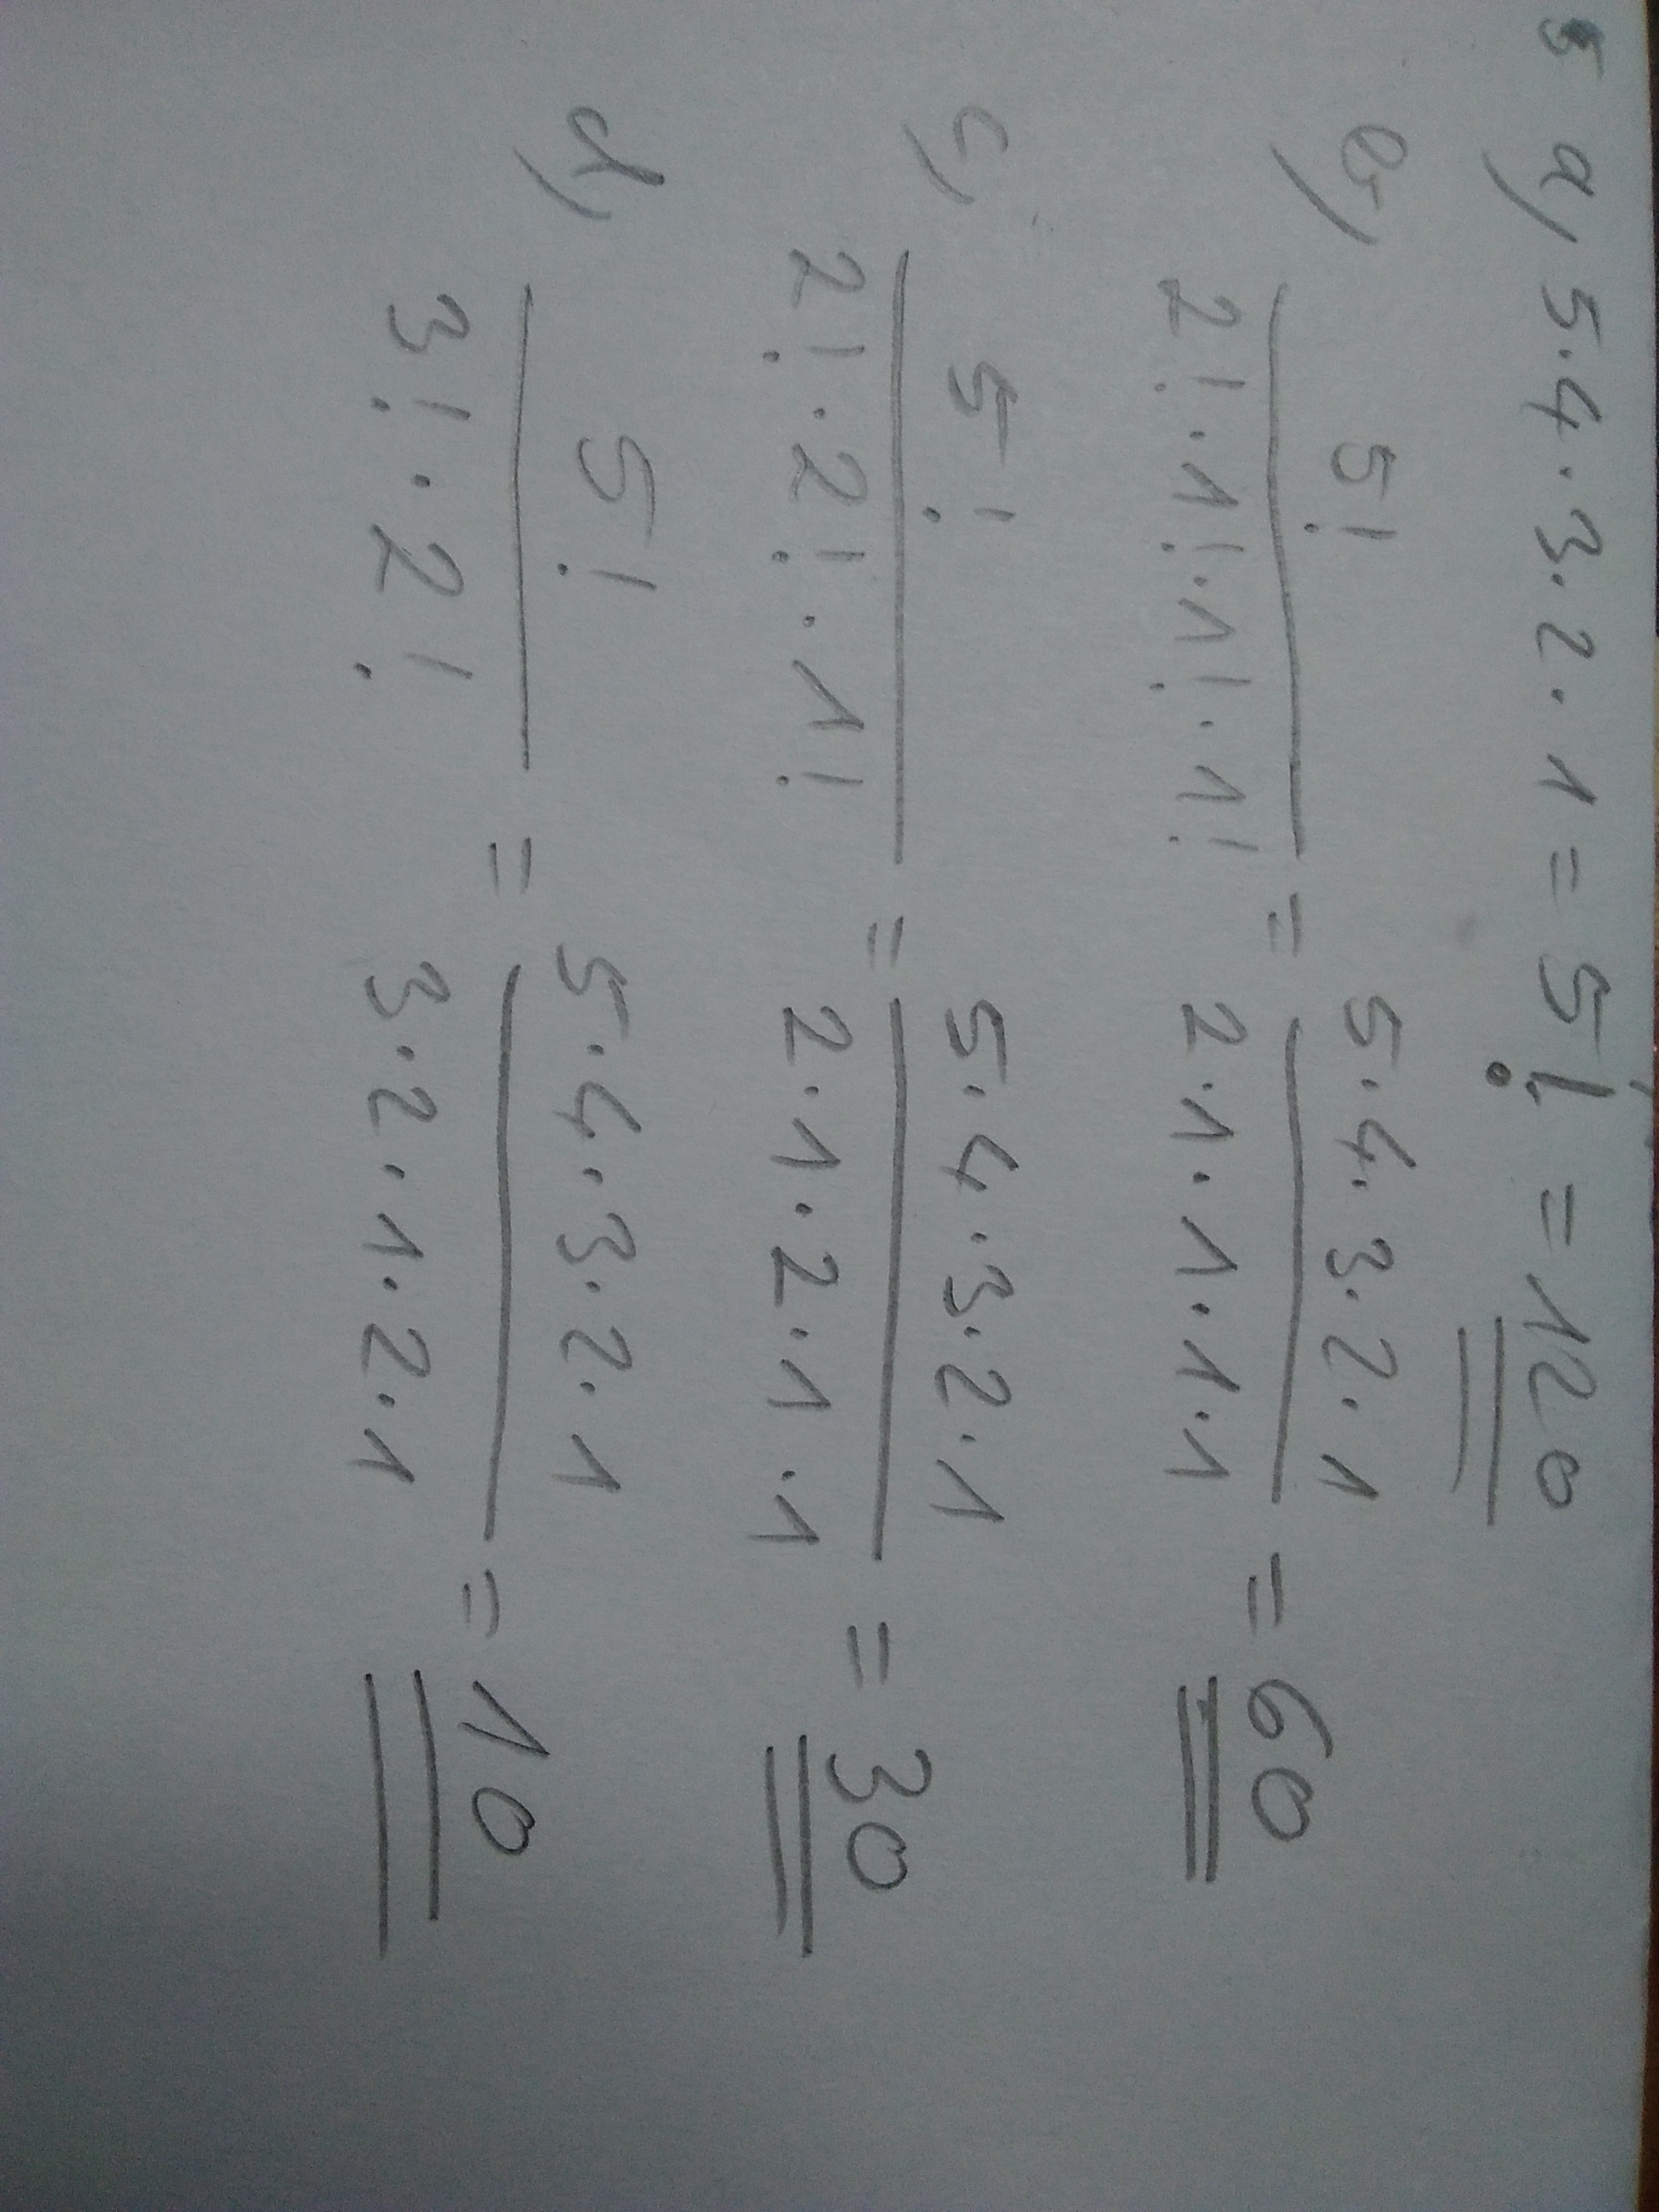 5 a) 5·4·3·2·1 = 5! = 120
b) 5! / 2!·1!·1!·1! = 5·4·3·2·1 / 2·1·1·1·1 = 60
c) 5! / 2!·2!·1! = 5·4·3·2·1 / 2·1·2·1·1 = 30
d) 5! / 3!·2! = 5·4·3·2·1 / 3·2·1·2·1 = 10